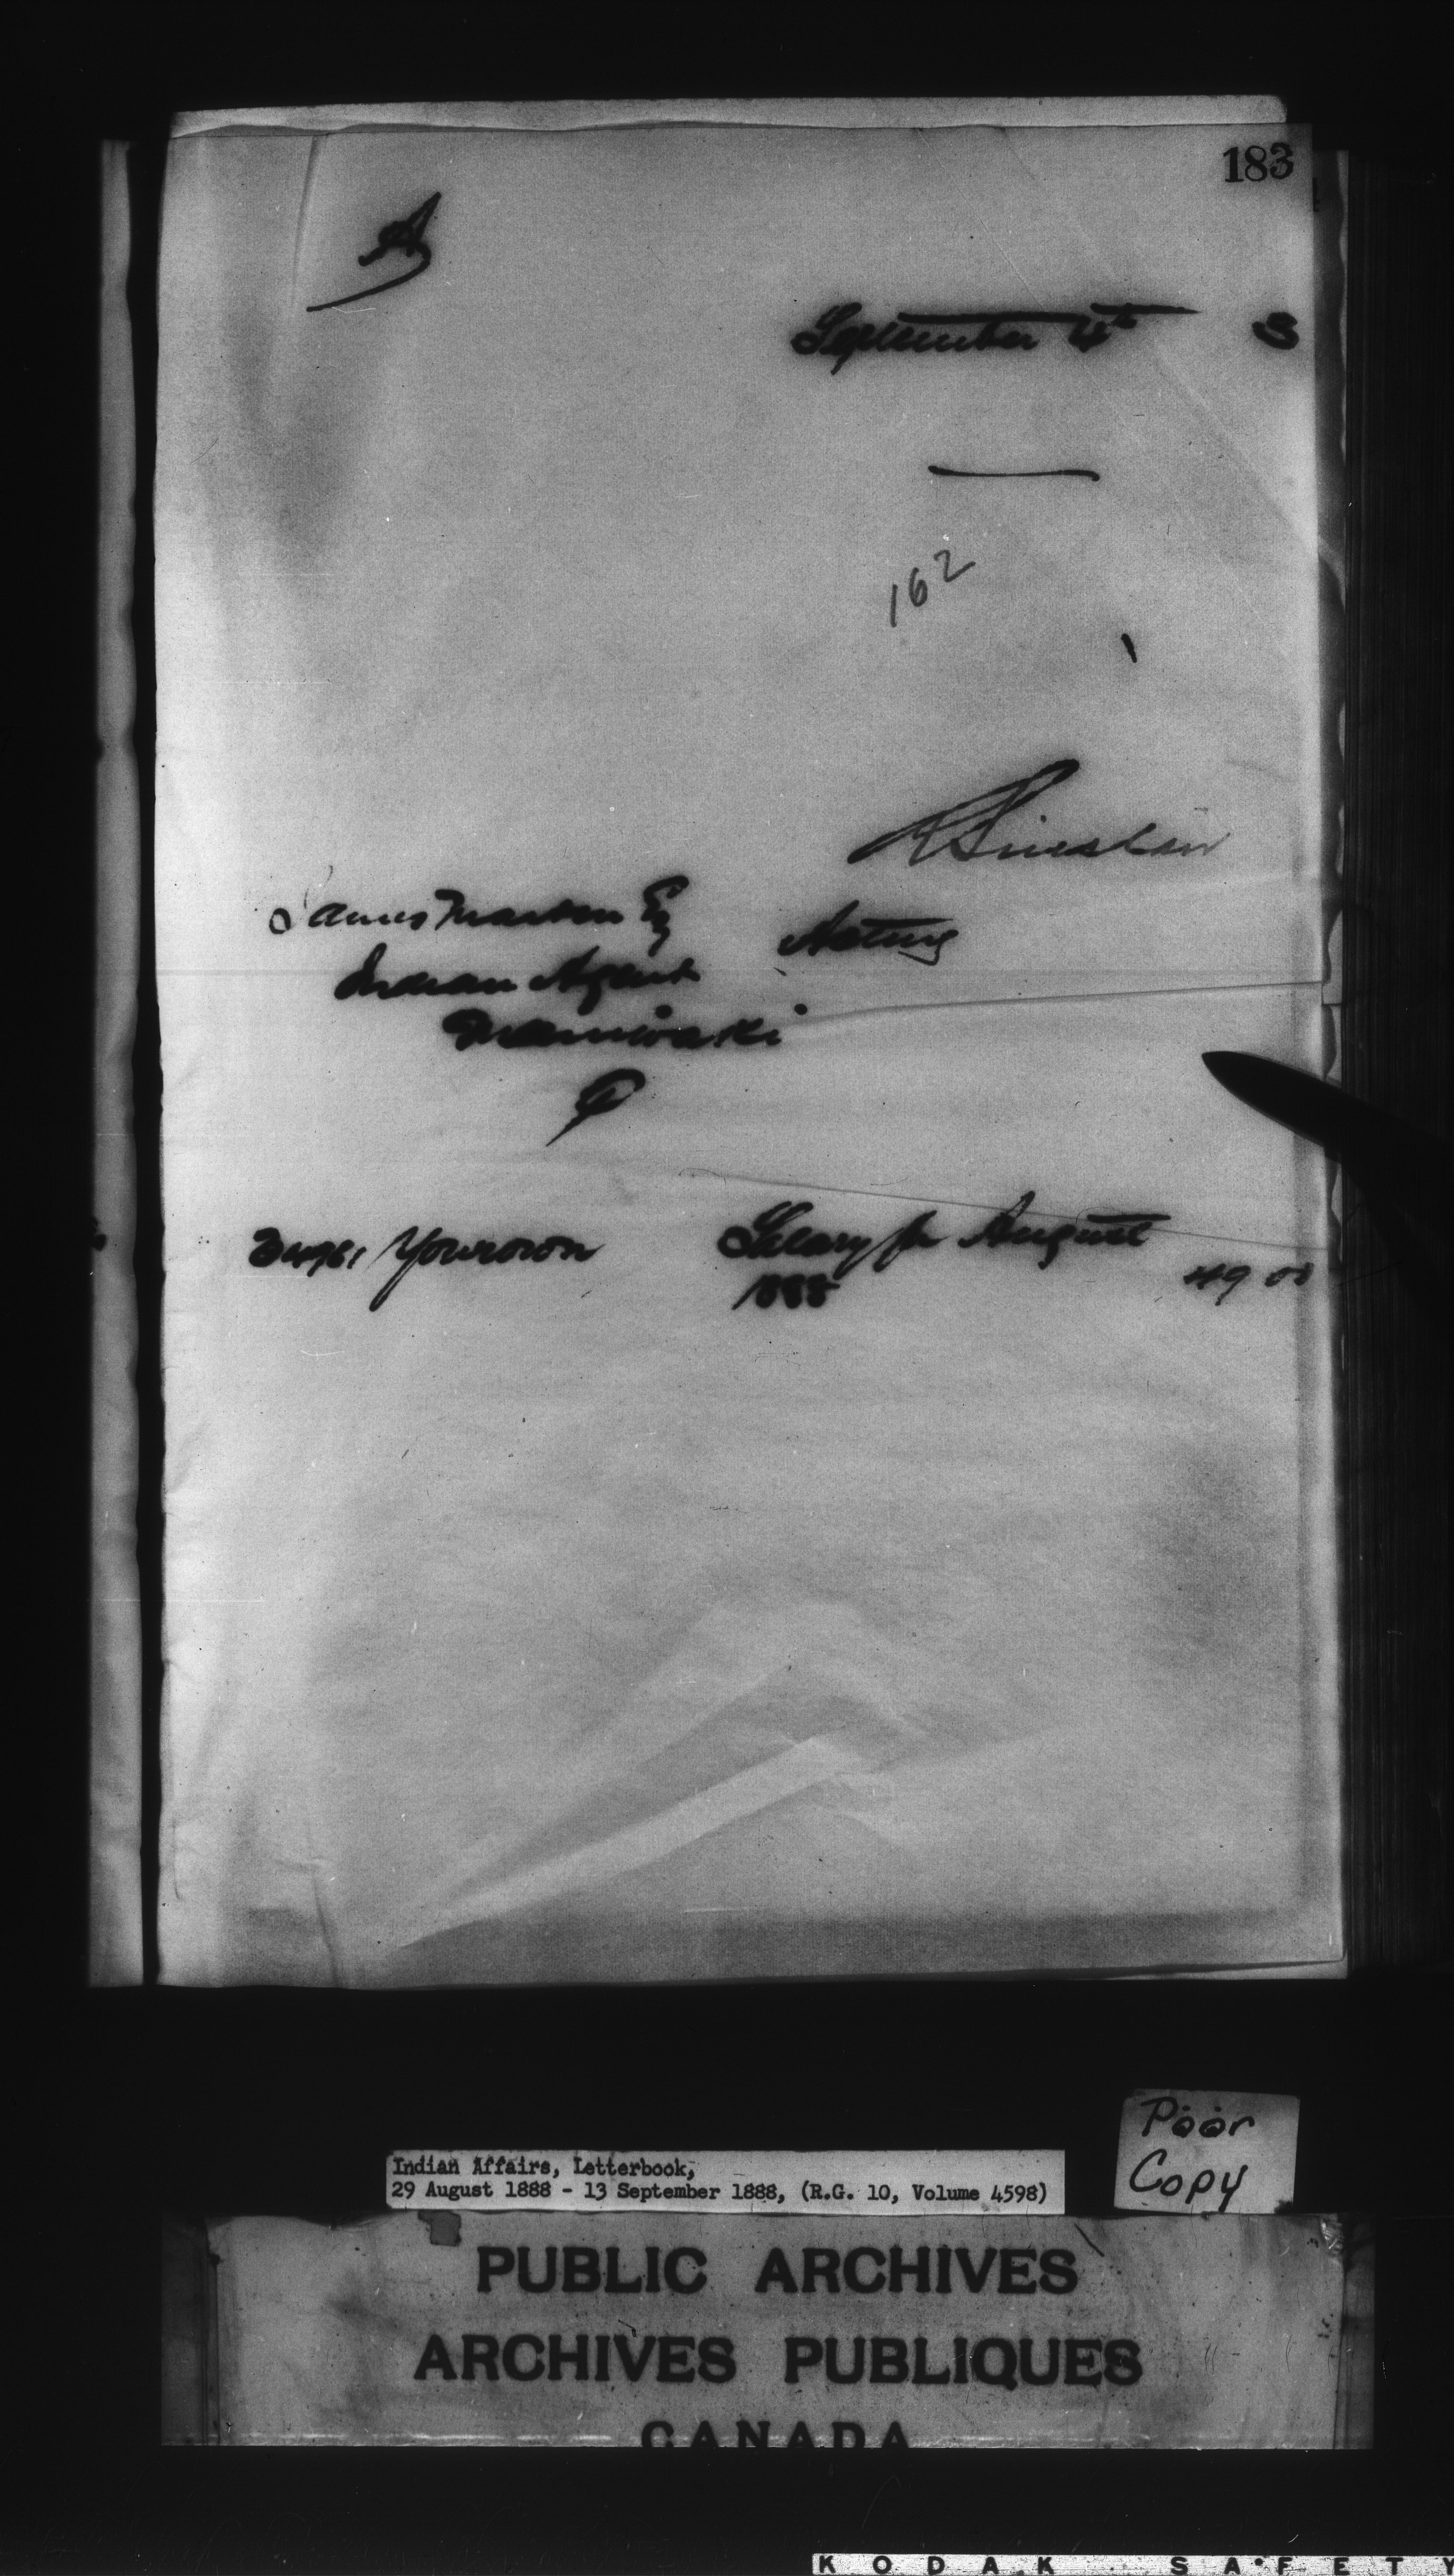 183
A
September 4th 8
162
R Sinclair
James Martin Esq
Acting
Indian Agent
Maniwaki
P
Yourown
Salary for August
1888
49 00
Poor
Copy
Indian Affairs, Letterbook,
29 August 1888 - 13 September 1888, (R.G. 10, Volume 4598)
PUBLIC ARCHIVES
ARCHIVES PUBLIQUES
CANADA
KODAK SAFETY